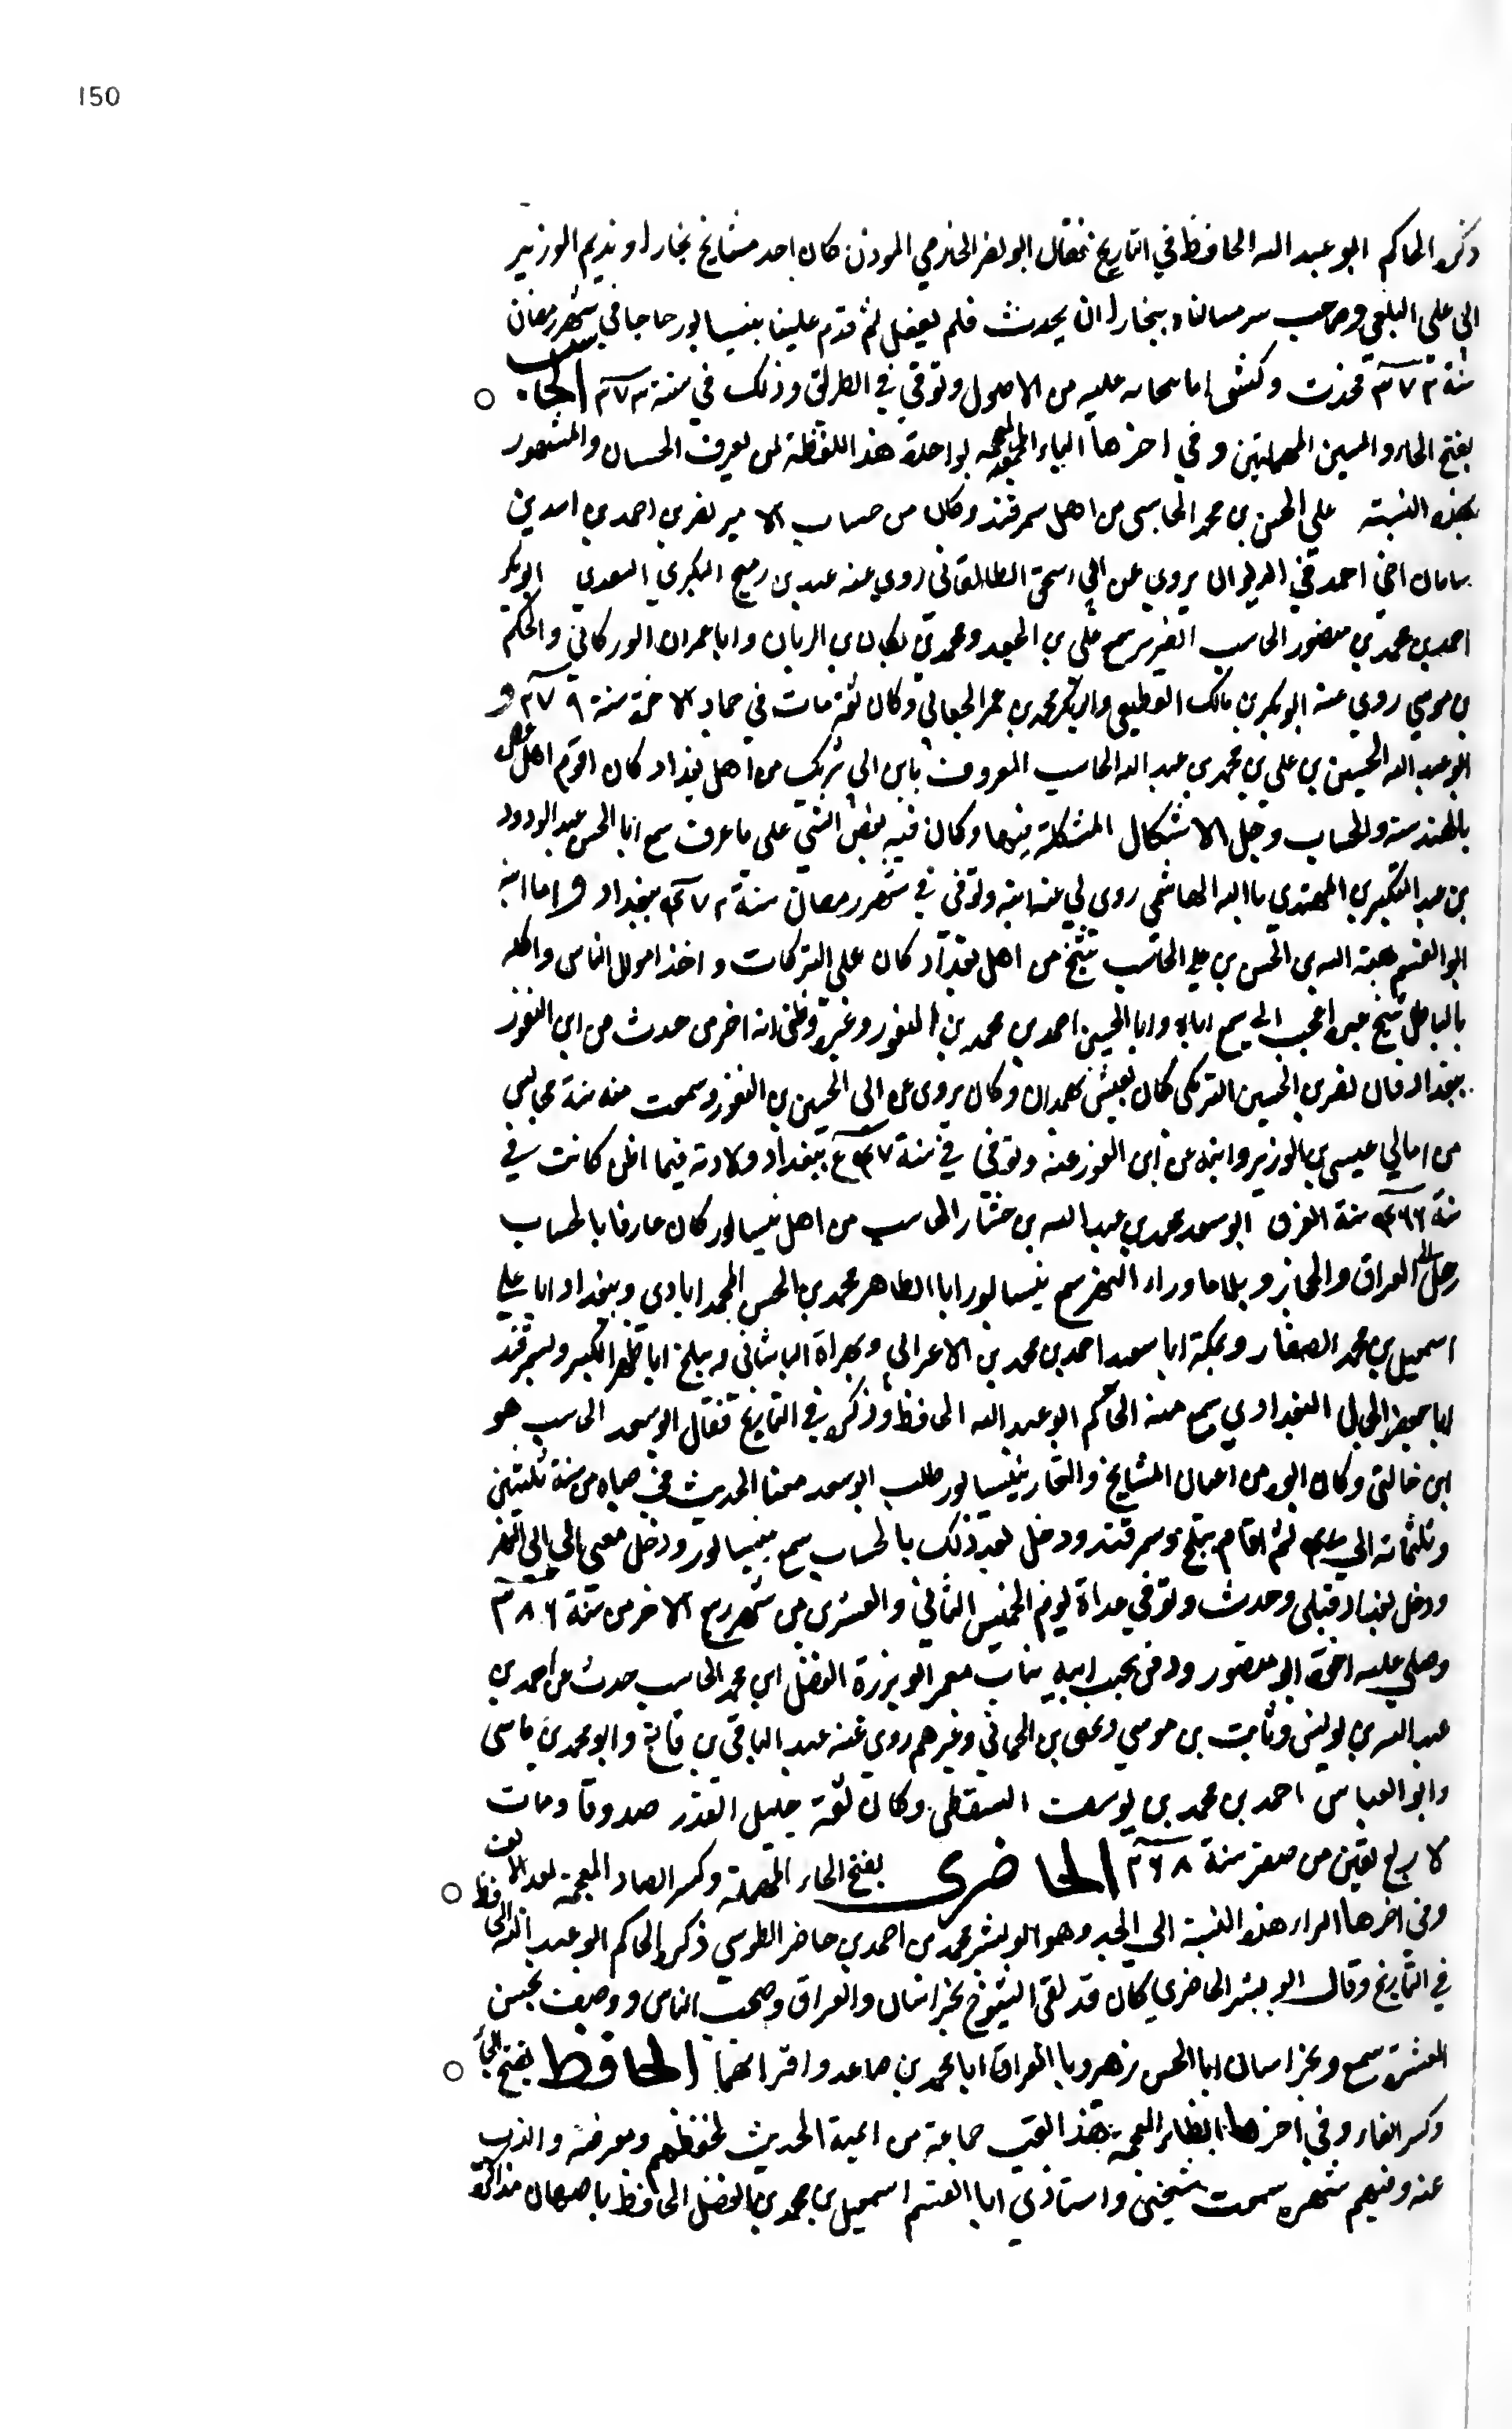 150
ذكره الحاكم ابو عبد الله الحافظ في التاريخ فقال ابو نصر الخزمي الموذن كان احد مشايخ بخارا ونديم الوزير
ابي علي البلعمي وصاحب سره سالناه ببخارا ان يحدث فلم يفعل ثم قدم علينا بنيسابور حاجا في شهر رمضان
سنة فحدث وكتبنا عليه من الاصول وتوفي في الطريق وذلك في سنة الحاسب
بفتح الحاء والسين المهملتين وفي اخرها الباء المعجمة بواحدة هذا اللفظة لمن يعرف الحساب والمشهور
بهذه النسبة علي الحسن بن محمد الحاسب من اهل سمرقند وكان من حساب الامير نصر بن احمد بن اسد بن
سامان اخي احمد في الديوان يروي عن ابي اسحق الطالقاني روي عنه عبد بن رميح البكري السعدي ابو بكر
احمد بن محمد بن منصور الحاسب الضرير سمع علي بن الجعد ومحمد بن بكار بن الريان وابا عمران الوركاني والحكم
بن موسي روي عنه ابو بكر بن مالك القطيعي وابو بكر محمد بن عمر الجعابي وكان ثقة مات في جماد الاخرة سنة و
ابو عبد الله الحسين بن علي بن محمد بن عبد الله الحاسب المعروف بابن ابي شريك من اهل بغداد كان اقوم اهل عصره
بالهندسة والحساب وحل الاشكال المشكلة فيها وكان فيه بعض الشي علي ما عرف سمع ابا الحسن عبد الودود
بن عبد المتكبر بن المهتدي بالله الهاشمي روي لي عنه ابنه وتوفي في شهر رمضان سنة ببغداد واما ابنه
ابو القسم هبة الله بن الحسن بن علي الحاسب شيخ من اهل بغداد كان علي التركات واخذ اموال الناس واكله
بالباطل شيخ سمع اباه وابا الحسين احمد بن محمد بن النقور وغيره وظني انه اخر من حدث من ابن النقور
ببغداد قال نصر بن الحسين التركي كان يعيش بهمدان وكان يروي عن ابي الحسين بن النقور وسمعت منه ستة مجالس
من امالي عيسى بن الوزير وابنه عن ابن النقور عنه وتوفي في سنة ببغداد ولادته فيما اظن كانت في
سنة سنة الغرق ابو سعد محمد بن عبد الله بن حمشاذ الحاسب من اهل نيسابور كان عارفا بالحساب
رحل الى العراق والحجاز وبلاد ما وراء النهر سمع بنيسابور ابا الطاهر محمد بن الحسن المحمد ابادي وببغداد ابا علي
اسمعيل بن محمد الصفار وبمكة ابا سعيد احمد بن محمد بن الاعرابي وبهراة الباشاني وببلخ ابا ظهر الكبير وبسمرقند
ابا جعفر الجمال البغدادي سمع منه الحاكم ابو عبد الله الحافظ وذكره في التاريخ فقال ابو سعد الحاسب هو
ابن خالتي وكان ابوه من اعيان المشايخ والتجار بنيسابور طلب ابو سعد معنا الحديث في صباه من سنة ثلثين
وثلثمائة الي ثم اقام ببلخ وسمرقند ودخل بعد ذلك بالحساب سمع بنيسابور ودخل معي الي ابي النضر
ودخل بغداد قبلي وحدث وتوفي غداة يوم الخميس الثاني والعشرين من شهر ربيع الاخر من سنة ٣٨٦
وصلي عليه اخوه ابو منصور ودفن بجنب ابيه بباب معمر ابو برزة الفضل بن محمد الحاسب حدث عن احمد بن
عبد الله بن يونس وثابت بن موسي ويحيى بن الحماني وغيرهم روي عنه عبد الباقي بن قانع وابو محمد بن ماسي
وابو العباس احمد بن محمد بن يوسف السقطي وكان ثقة جليل القدر صدوقا ومات
لاربع بقين من صفر سنة الحاضري بفتح الحاء المهملة وكسر الضاد المعجمة بعد الالف
وفي اخرها الراء هذه النسبة الي الجد وهو ابو بشر محمد بن احمد بن حاضر الطوسي ذكره الحاكم ابو عبد الله الحافظ
في التاريخ وقال ابو بشر الحاضري كان قد لقي الشيوخ بخراسان والعراق وصحب الناس ووصف بحسن
العشرة سمع وبخراسان ابا الحسن زهير وبا العراق ابا محمد بن صاعد واقرانهما الحافظ بفتح الحاء
وكسر الفاء وفي اخرها الظاء المعجمة بهذا اللقب جماعة من ايمة الحديث لحفظهم ومعرفته والذب
عنه وفيهم شهره سمعت شيخي واستاذي ابا القسم اسمعيل بن محمد بن الفضل الحافظ باصبهان مذاكرة